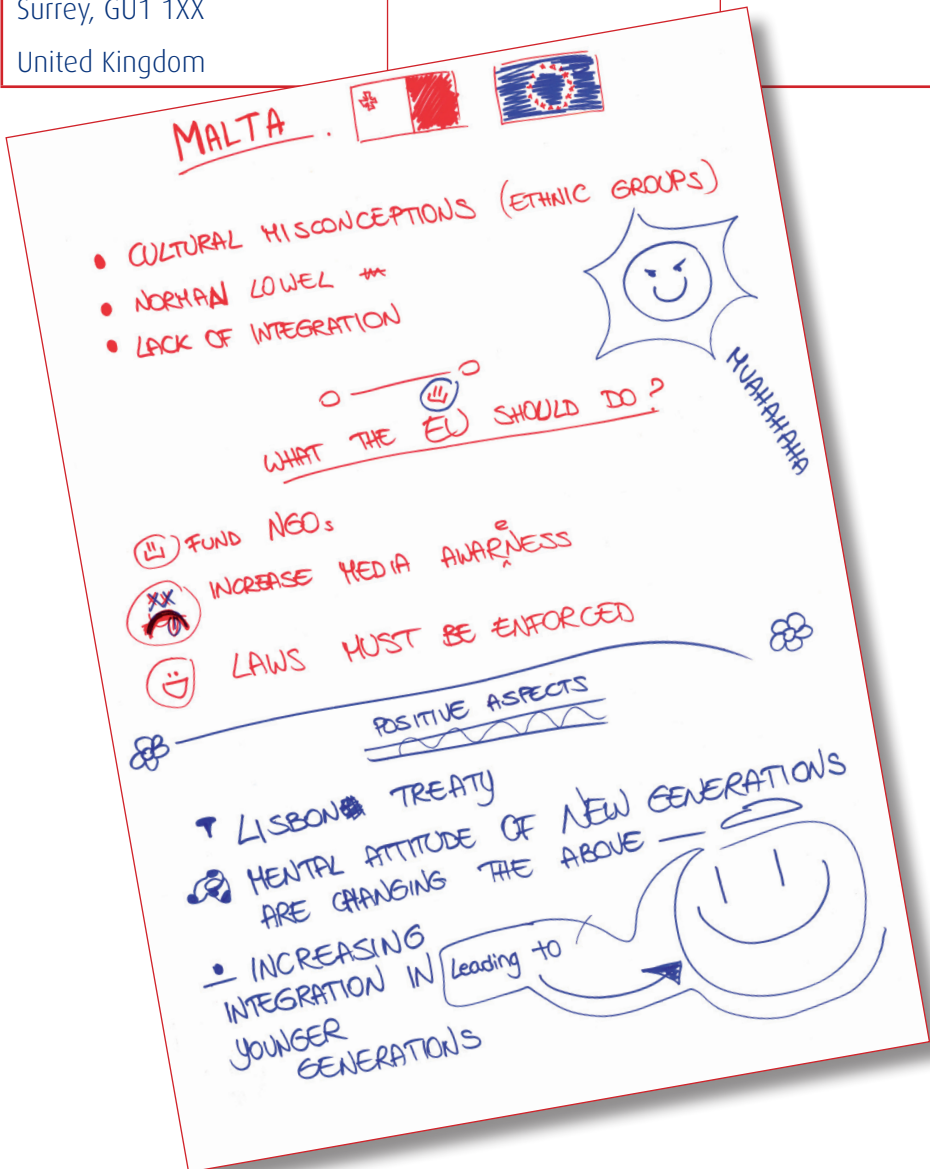 Surrey, GU1 1XX
United Kingdom
MALTA.
• CULTURAL MISCONCEPTIONS (ETHNIC GROUPS)
• NORMAN LOWEL
• LACK OF INTEGRATION
MUAHAHAHAHA
WHAT THE EU SHOULD DO?
FUND NGOs
INCREASE MEDIA AWARENESS
LAWS MUST BE ENFORCED
POSITIVE ASPECTS
LISBON TREATY
MENTAL ATTITUDE OF NEW GENERATIONS
ARE CHANGING THE ABOVE —
• INCREASING
INTEGRATION IN Leading to
YOUNGER
GENERATIONS